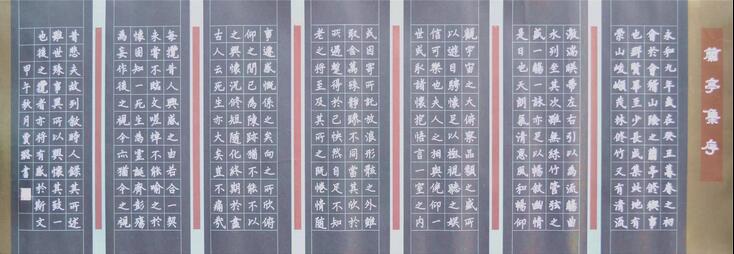 蘭亭集序
永和九年歲在癸丑暮春之初
會於會稽山陰之蘭亭修禊事
也群賢畢至少長咸集此地有
崇山峻嶺茂林修竹又有清流
激湍映帶左右引以為流觴曲
水列坐其次雖無絲竹管弦之
盛一觴一詠亦足以暢敘幽情
是日也天朗氣清惠風和暢仰
觀宇宙之大俯察品類之盛所
以遊目騁懷足以極視聽之娛
信可樂也夫人之相與俯仰一
世或取諸懷抱悟言一室之內
或因寄所託放浪形骸之外雖
取舍萬殊靜躁不同當其欣於
所遇暫得於己快然自足不知
老之將至及其所之既惓情隨
事遷感慨係之矣向之所欣俯
仰之間已為陳跡猶不能不以
之興懷況修短隨化終期於盡
古人云死生亦大矣豈不痛哉
每攬昔人興感之由若合一契
未嘗不臨文嗟悼不能喻之於
懷固知一死生為虛誕齊彭殤
為妄作後之視今亦猶今之視
昔悲夫故列敘時人錄其所述
雖世殊事異所以興懷其致一
也後之攬者亦將有感於斯文
甲午秋月賈書